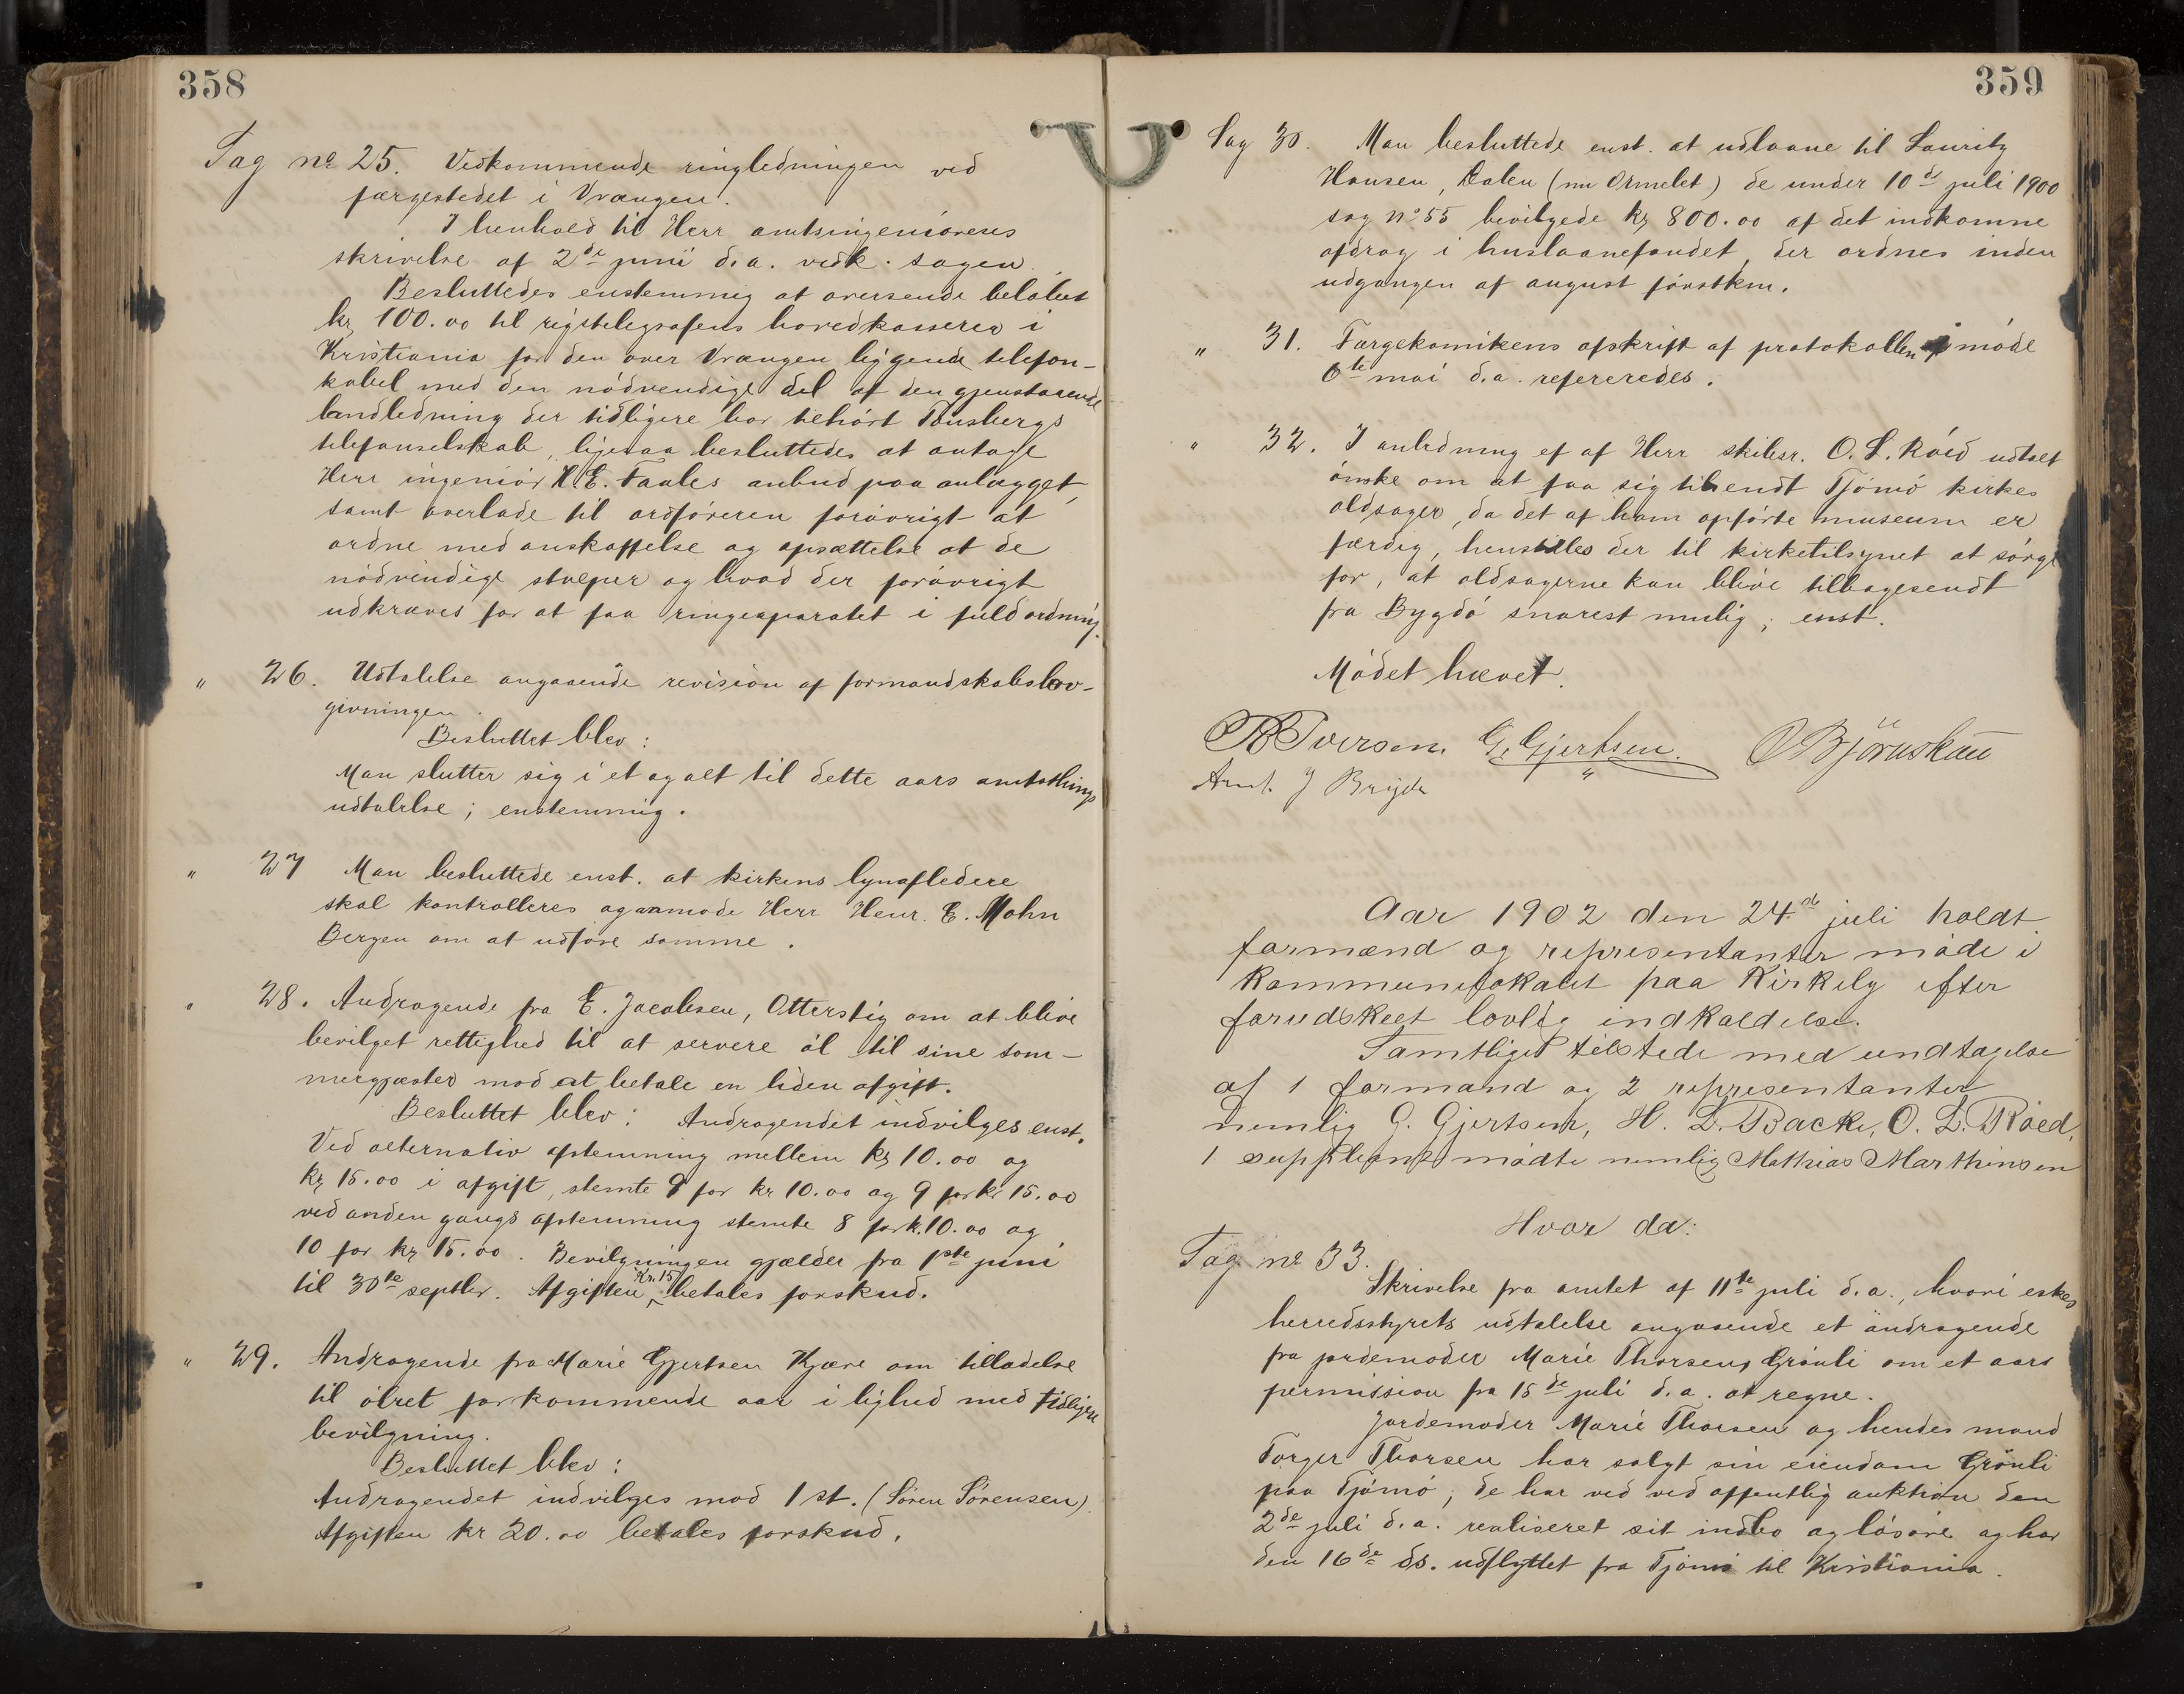 358
Sag no 25. Vedkommende ringledningen ved
færgestedet i Vrængen.
I henhold til Herr amtsingeniørens
skrivelse af 2de juni d.a. vedk. sagen
Besluttedes enstemmig at oversende beløbet
kr 100.00 til rigstelegrafens hovedkasserer i
Kristiania for den over Vrængen liggende telefon-
kabel med den nödvendige del af den gjenstaaende
landledning der tidligere har tilhørt Tönsbergs
telefonselskab, ligesaa besluttedes at antage
Herr ingeniör H.E. Faales anbud paa anlægget,
samt overlade til ordföreren forövrigt at
ordne med anskaffelse og opsættelse at de
nödvendige stolper og hvad der forövrigt
udkræves for at faa ringeaparatet i fuld ordning.
" 26. Udtalelse angaaende revision af formandskabslov-
givningen.
Besluttet blev:
Man slutter sig i et og alt til dette aars amtsthings
udtalelse; enstemmig.
" 27 Man besluttede enst. at kirkens lynafledere
skal kontrolleres og anmode Herr Henr. E. Mohn
Bergen om at udföre samme.
" 28. Andragende fra E. Jacobsen, Otterstig om at blive
bevilget rettighed til at servere öl til sine som-
mergjæster mod at betale en liden afgift.
Besluttet blev: Andragendet indvilges enst.
Ved alternativ afstemning mellem kr 10.00 og
kr 15.00 i afgift, stemte 9 for kr 10.00 og 9 for kr 15.00
ved anden gangs afstemning stemte 8 for k. 10.00 og
10 for kr 15.00. Bevilgningen gjælder fra 1ste juni
til 30te septbr. Afgiften Kr. 15 betales forskud.
" 29. Andragende fra Marie Gjertsen Kjære om tilladelse
til ölret for kommende aar i lighed med tidligere
bevilgning.
Besluttet blev:
Andragendet indvilges mod 1 st. (Sören Sörensen).
Afgiften kr 20.00 betales forskud.
359
Sag 30. Man besluttede enst. at udlaane til Lauritz
Hansen, Dalen (nu Ormelet) de under 10de juli 1900
sag no 55 bevilgede kr 800.00 af det indkomne
afdrag i huslaanefondet, der ordnes inden
udgangen af august förstkm.
" 31. Færgekomiteens afskrift af protokollen i möde
6te mai d.a. refereredes.
" 32. I anledning ef af Herr skibsr. O. L. Röed udtalt
önske om at faa sig tilsendt Tjömö kirkes
oldsager, da det af ham opförte museum er
færdig, henstilles der til kirketilsynet at sörge
for, at oldsagerne kan blive tilbagesendt
fra Bygdö snarest mulig; enst.
Mödet hævet.
Iversen. G. Gjertsen. O Björnskau
Arnt. J Brijde
Aar 1902 den 24de juli holdt
formænd og representanter möde i
kommunelokalet paa Kirkely efter
forudskeet lovlig indkaldelse.
Samtlige tilstede med undtagelse
af 1 formand og 2 representanter
nemlig G. Gjertsen, H. L. Backe, O. L. Röed,
1 suppleant mödte nemlig Mathias Marthinsen
Hvor da:
Sag no 33.
Skrivelse fra amtet af 11te juli d.a., hvori eskes
herredsstyrets udtalelse angaaende et andragende
fra jordemoder Marie Thorsen, Grönli om et aars
permission fra 15de juli d.a. at regne.
Jordemoder Marie Thorsen og hendes mand
Torger Thorsen har solgt sin eiendom Grönli
paa Tjömö; de har ved ved offentlig auktion den
2de juli d.a. realiseret sit indbo og lösöre og har
den 16de ds. udflyttet fra Tjömö til Kristiania.